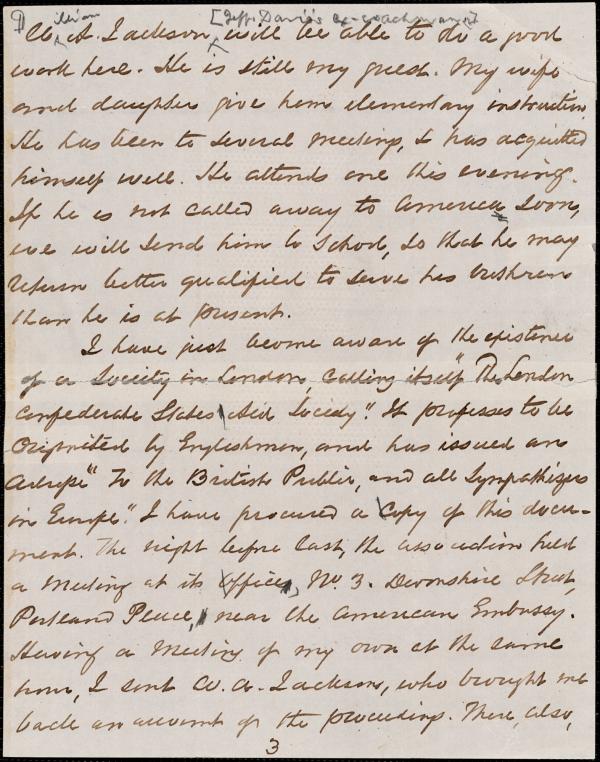 illiam [Jeff. Davis's ex-coachman]
W. A. Jackson, will be able to do a good
work here. He is still my guest. My wife
and daughter give him elementary instruction.
He has been to several meetings, & has acquitted
himself well. He attends one this evening.
If he is not called away to America soon,
we will send him to School, so that he may
return better qualified to serve his brethren
than he is at present.
I have just become aware of the existence
of a Society in London calling itself "The London
Confederate States Aid Society". It professes to be
originated by Englishmen, and has issued an
"To the British Public, and all Sympathizers
in Europe." I have procured a Copy of this docu-
ment. The night before last, the association held
a meeting at its Offices, No. 3. Devonshire Street,
Portland Place, near the American Embassy.
Having a meeting of my own at the same
hour, I sent W. A. Jackson, who brought me
back an account of the proceedings. There, also,
3